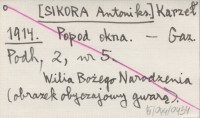 [SIKORA Antoni ks.] Karzeł
1914. Popod okna. — Gaz.
Podh, 2, nr 5.
Wilia Bożego Narodzenia
(obrazek obyczajowy gwarą).